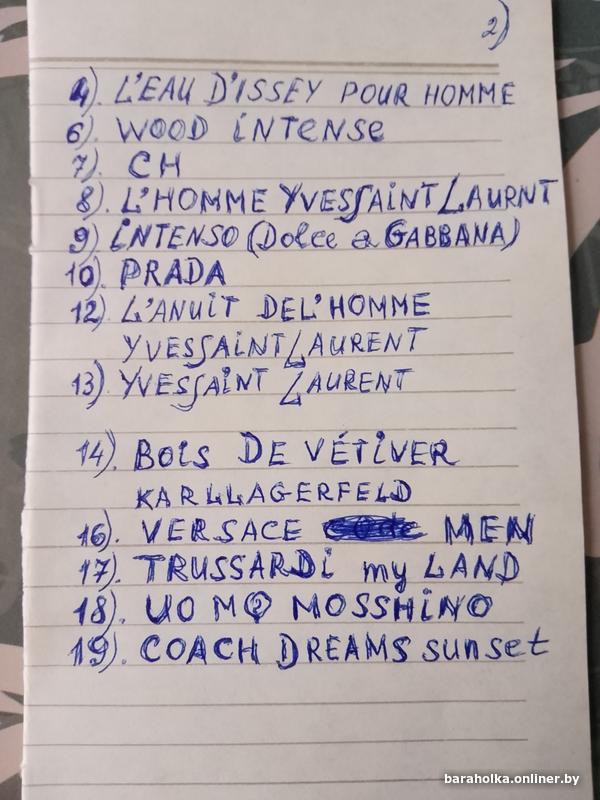 2)
4). L'EAU D'ISSEY POUR HOMME
6). WOOD iNTENSe
7). CH
8). L'HOMME YVESSAiNT LAURNT
9) iNTENSO (Dolce a GABBANA)
10). PRADA
12). L'ANUiT DEL'HOMME
YVESSAiNT LAURENT
13). YVESSAiNT LAURENT
14). Bois DE VÉTiVER
KARLLAGERFELD
16). VERSACE MEN
17). TRUSSARDi my LAND
18). UOMO MOSSHiNO
19). COACH DREAMS sunset
baraholka.onliner.by